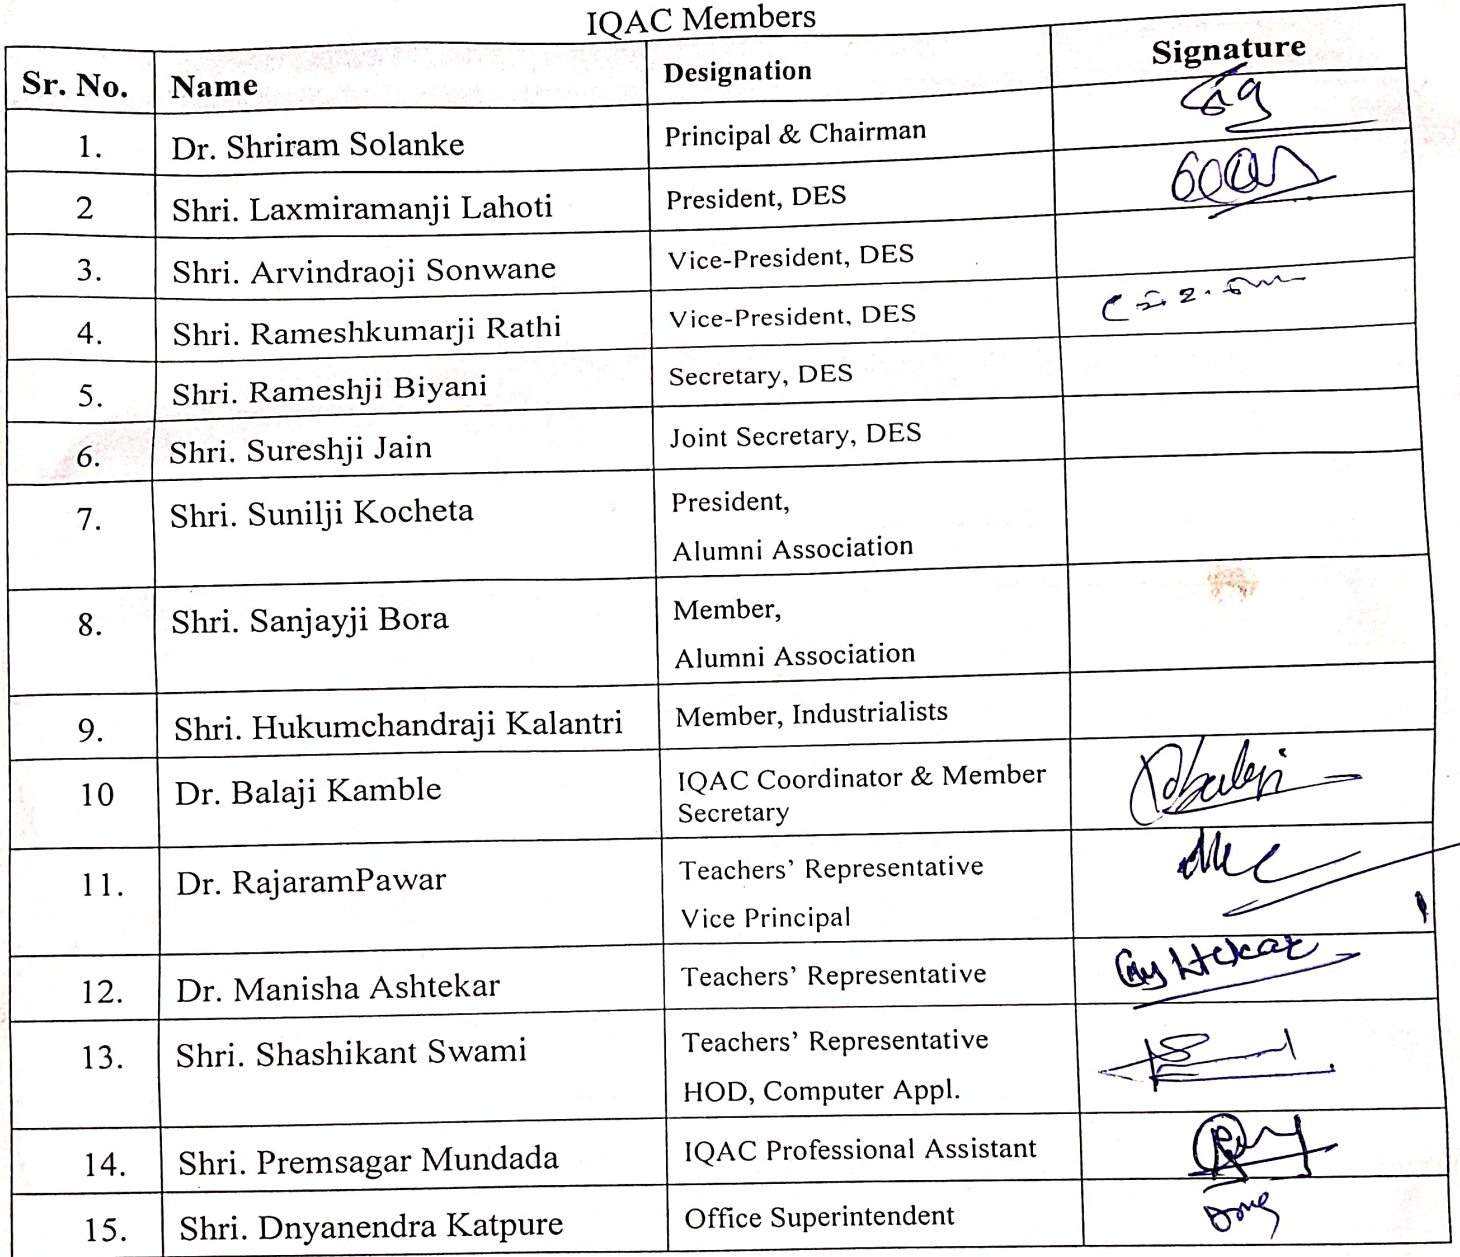 IQAC Members
Sr. No. Name Designation Signature
1. Dr. Shriram Solanke Principal & Chairman
2 Shri. Laxmiramanji Lahoti President, DES
3. Shri. Arvindraoji Sonwane Vice-President, DES
4. Shri. Rameshkumarji Rathi Vice-President, DES
5. Shri. Rameshji Biyani Secretary, DES
6. Shri. Sureshji Jain Joint Secretary, DES
7. Shri. Sunilji Kocheta President,
Alumni Association
8. Shri. Sanjayji Bora Member,
Alumni Association
9. Shri. Hukumchandraji Kalantri Member, Industrialists
10 Dr. Balaji Kamble IQAC Coordinator & Member
Secretary
11. Dr. RajaramPawar Teachers' Representative
Vice Principal
12. Dr. Manisha Ashtekar Teachers' Representative
13. Shri. Shashikant Swami Teachers' Representative
HOD, Computer Appl.
14. Shri. Premsagar Mundada IQAC Professional Assistant
15. Shri. Dnyanendra Katpure Office Superintendent